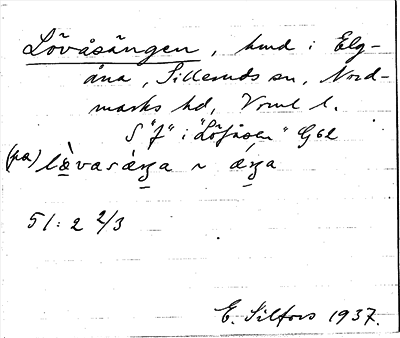 Lövåsängen, hmd i Elg-
åna, Silleruds sn, Nord-
marks hd, Vrml l.
S "f" i "Löfåsen" G 62
(pa) lòvasæ̀ŋa ~ æ̀ŋa
51: 2 2/3
E. Silfors 1937.